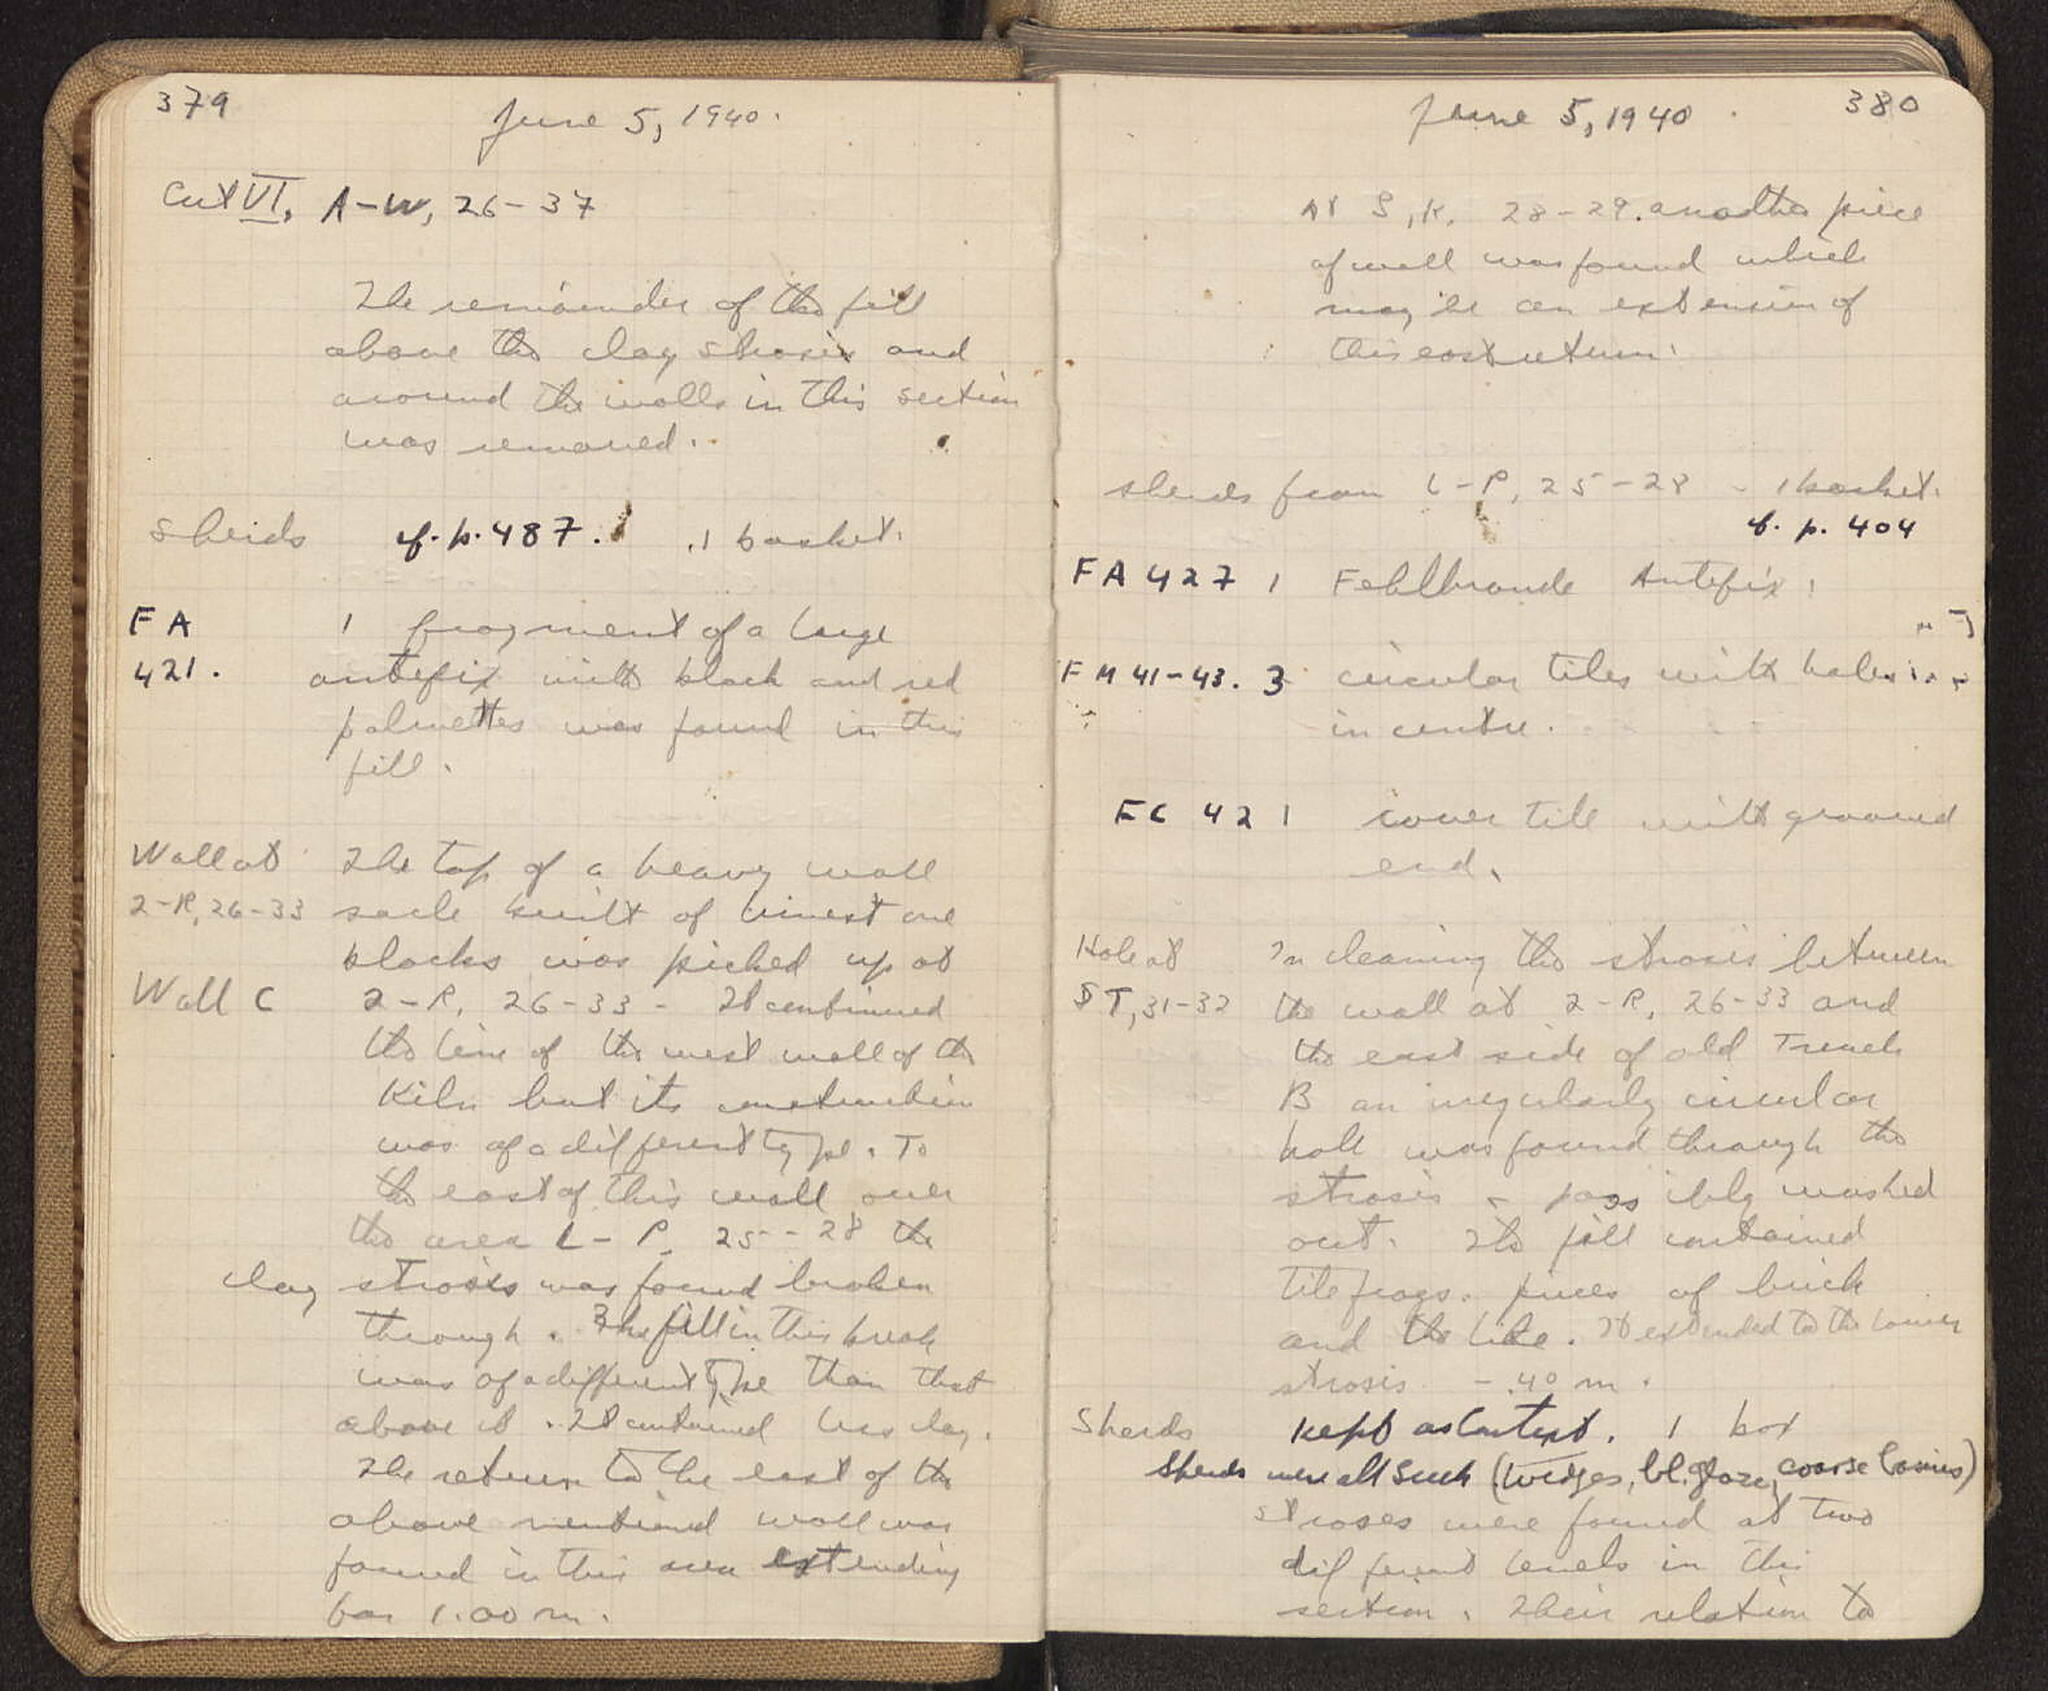 379
June 5, 1940.
Cut VI, A-W, 26-37
The remainder of the fill
above the clay strosis and
around the walls in this section
was removed.
Sherds cf. p. 487. 1 basket.
FA 1 fragment of a large
421. antefix with black and red
palmettes was found in this
fill.
Wall at The top of a heavy wall
2-R, 26-33 socle built of limestone
blocks was picked up at
Wall C 2-R, 26-33 - It continued
the line of the west wall of the
Kiln but its construction
was of a different type. To
the east of this wall over
the area L-P, 25-28 the
clay strosis was found broken
through. The fill in this break
was of a different type than that
above it. It contained less clay.
The return to the east of the
above mentioned wall was
found in this area extending
for 1.00 m.
June 5, 1940 380
At S, K. 28-29. another piece
of wall was found which
may be an extension of
this east return.
sherds from L-P, 25-28 - 1 basket.
cf. p. 404
FA 427 1 Fehlbrande Antefix.
FM 41-43. 3 circular tiles with holes
in centre.
FC 42 1 cover tile with grooved
end.
Hole at In cleaning the strosis between
ST, 31-32 the wall at 2-R, 26-33 and
the east side of old Trench
B an irregularly circular
hole was found through the
strosis - possibly washed
out. Its fill contained
tile frags. pieces of brick
and the like. It extended to the lower
strosis - .40 m.
Sherds Kept as Context. 1 box
Sherds were all such (wedges, bl. glaze, coarse basins)
Stroses were found at two
different levels in this
section. Their relation to